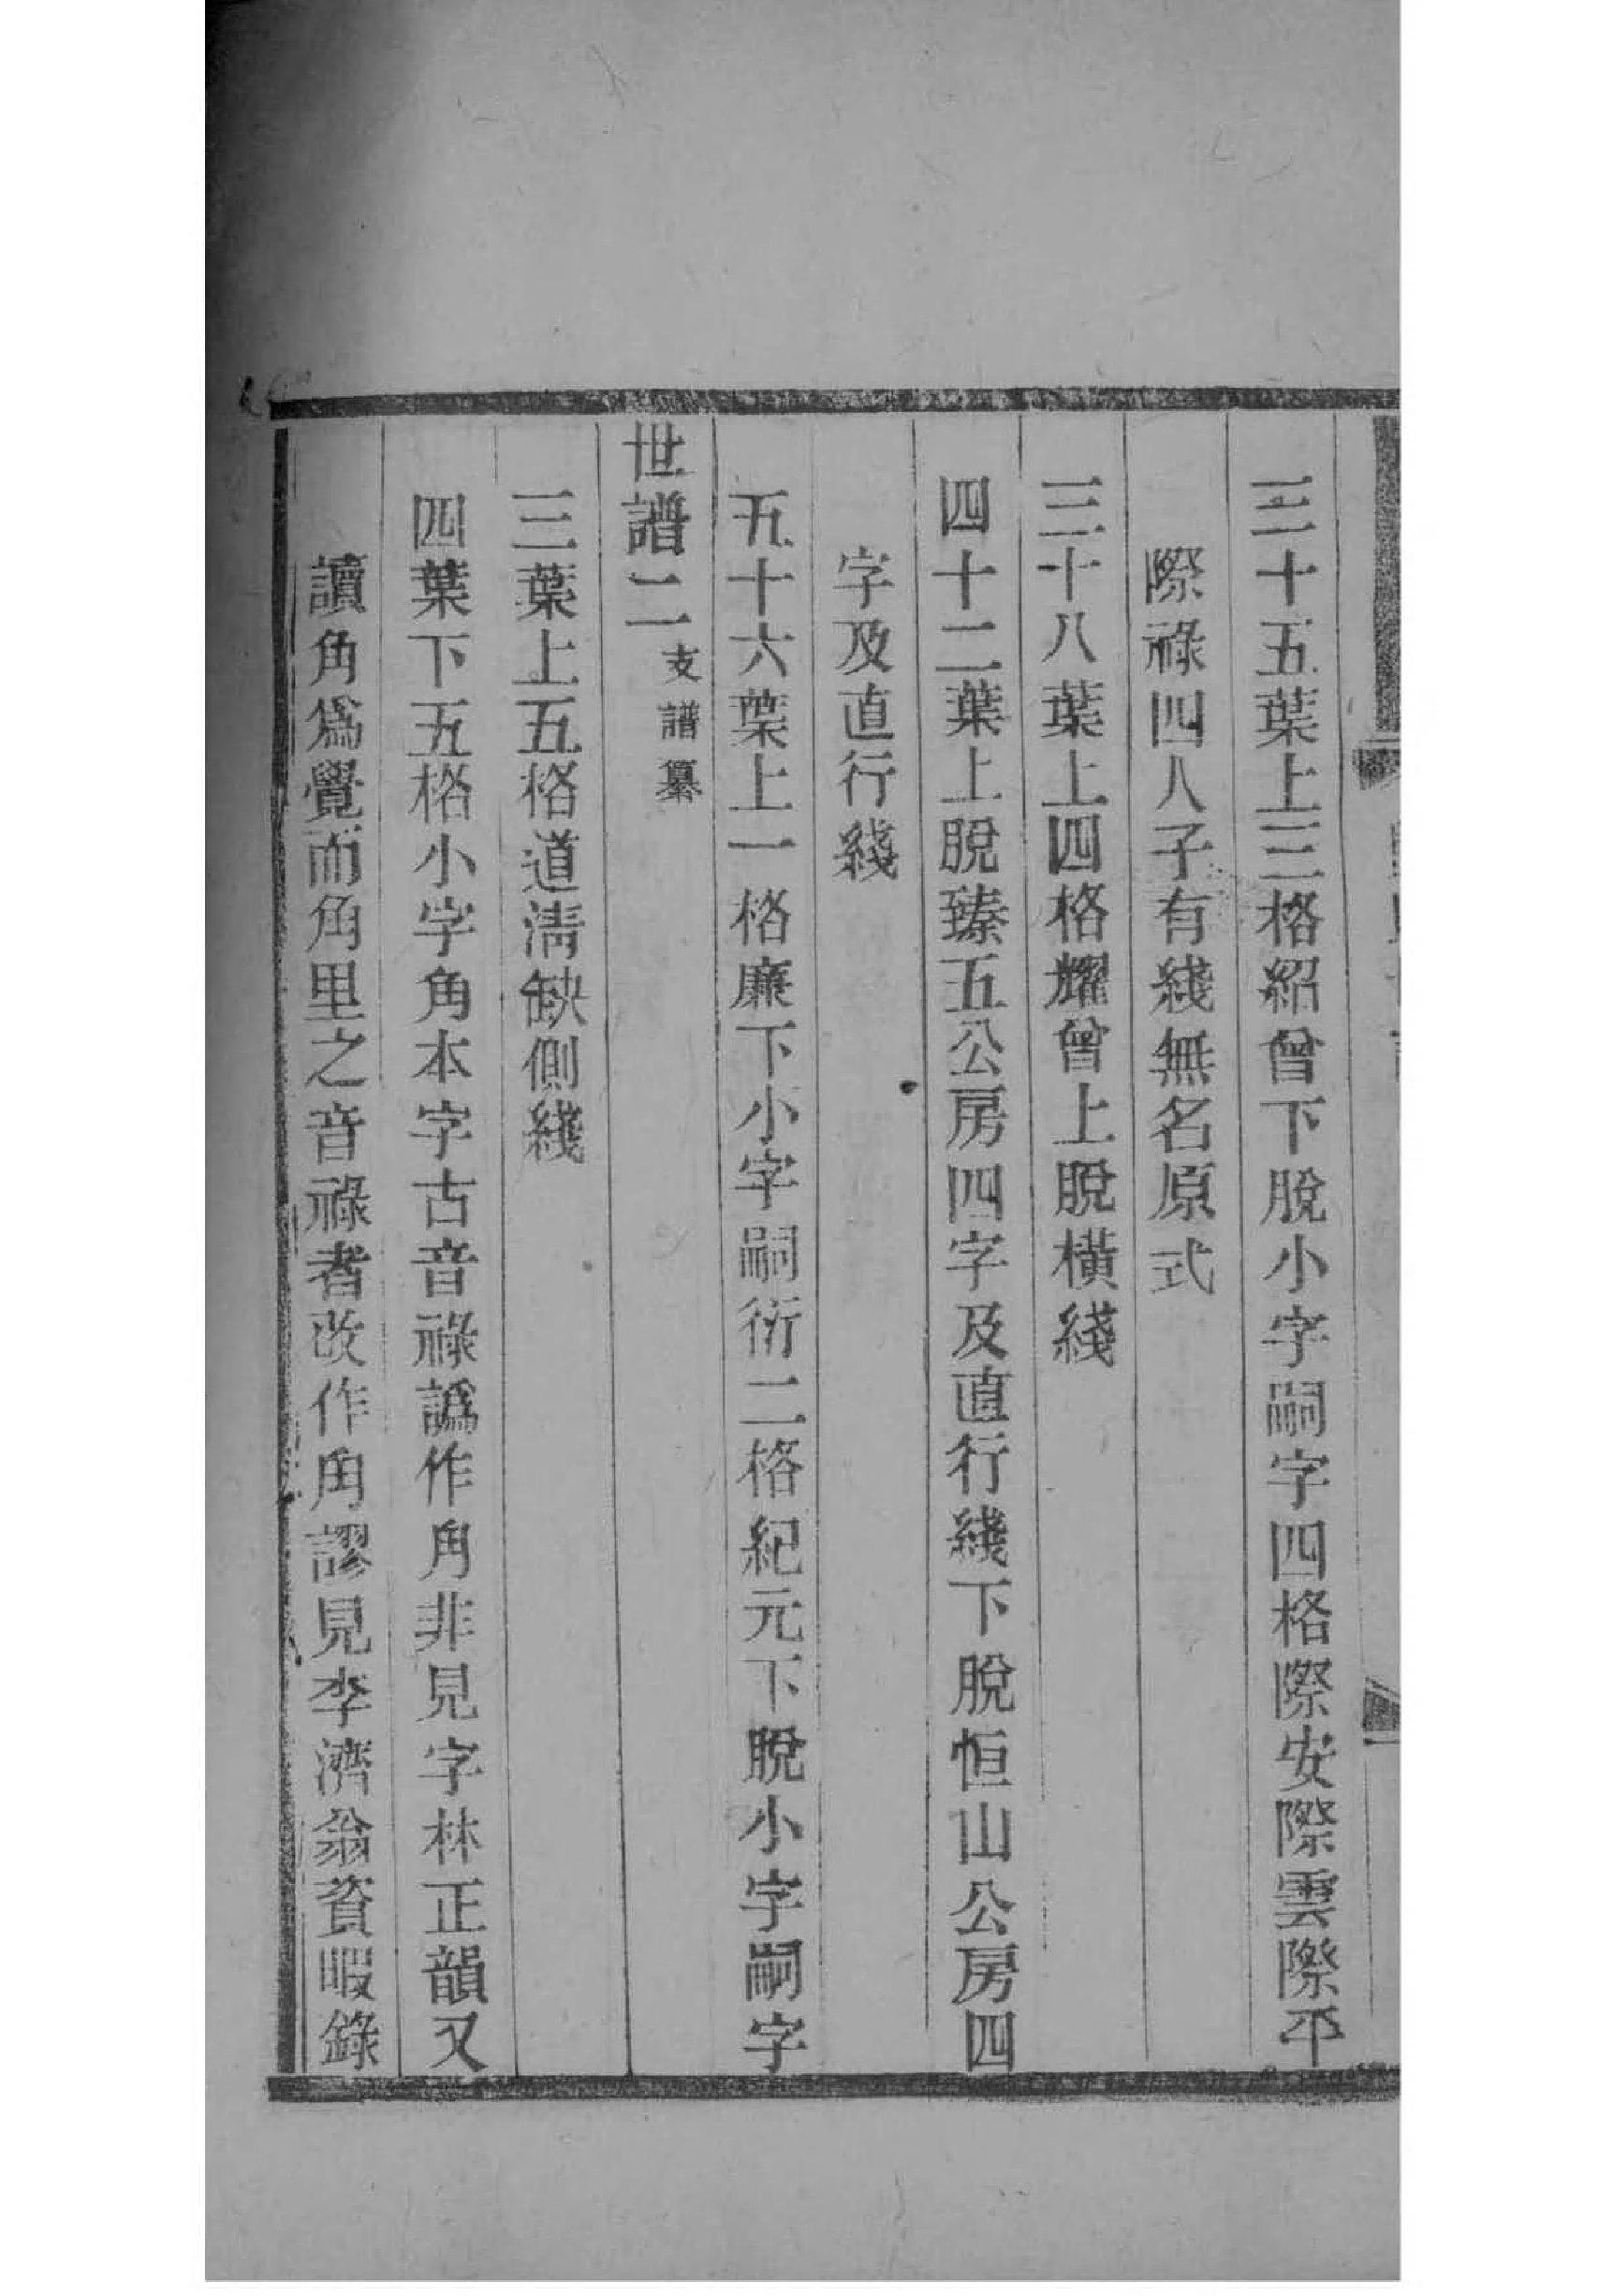 三十五葉上三格紹曾下脫小字嗣字四格際安際雲際平
際祿四人子有綫無名原式
三十八葉上四格耀曾上脫橫綫
四十二葉上脫臻五公房四字及直行綫下脫恒山公房四
字及直行綫
五十六葉上一格廉下小字嗣衍二格紀元下脫小字嗣字
世譜二支譜纂
三葉上五格道淸缺側綫
四葉下五格小字角本字古音祿譌作角非見字林正韻又
讀角爲覺而角里之音祿者改作角謬見李濟翁資暇錄